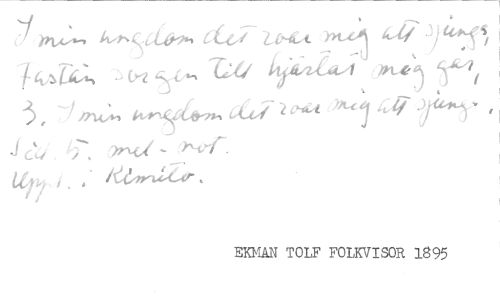 I min ungdom det roar mig att sjunga,
Fastän sorgen till hjärtat mig går,
3. I min ungdom det roar mig att sjunga,
Sid. 5. mel - not.
Uppt. i Kimito.
EKMAN TOLF FOLKVISOR 1895